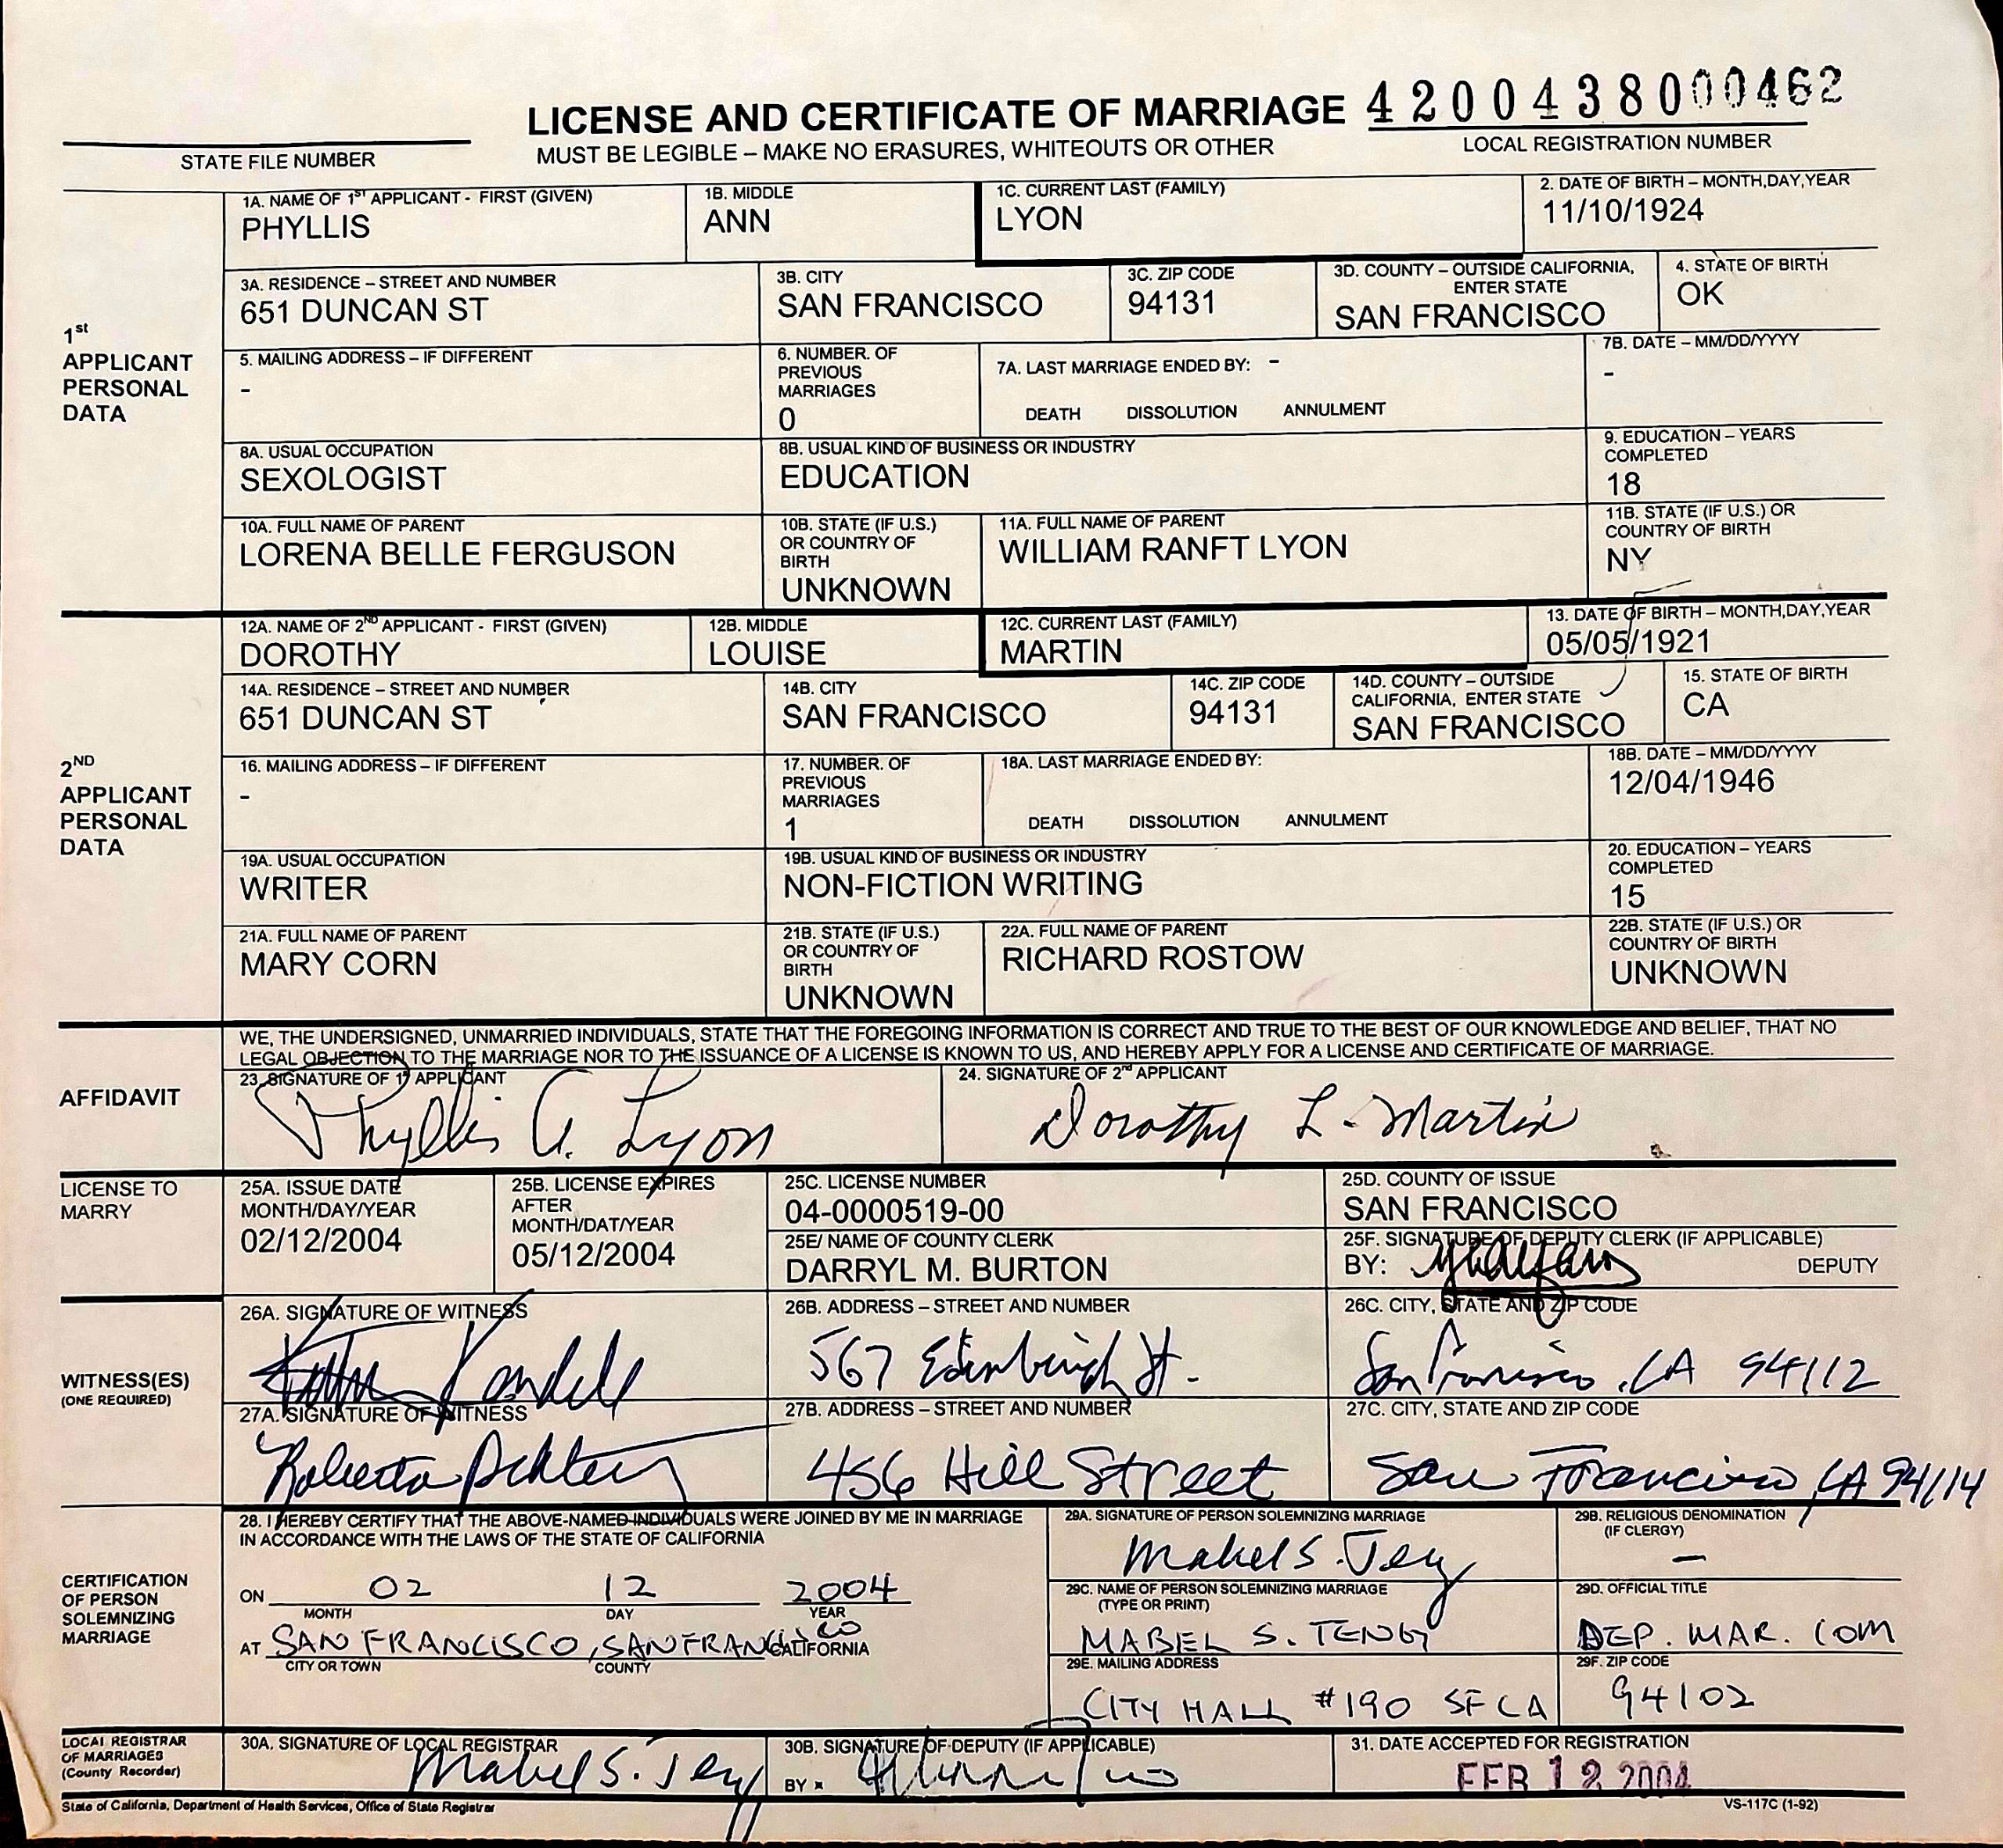 LICENSE AND CERTIFICATE OF MARRIAGE 4200438000462
STATE FILE NUMBER MUST BE LEGIBLE – MAKE NO ERASURES, WHITEOUTS OR OTHER LOCAL REGISTRATION NUMBER
1st APPLICANT PERSONAL DATA
1A. NAME OF 1ST APPLICANT - FIRST (GIVEN)
PHYLLIS
1B. MIDDLE
ANN
1C. CURRENT LAST (FAMILY)
LYON
2. DATE OF BIRTH – MONTH,DAY,YEAR
11/10/1924
3A. RESIDENCE – STREET AND NUMBER
651 DUNCAN ST
3B. CITY
SAN FRANCISCO
3C. ZIP CODE
94131
3D. COUNTY – OUTSIDE CALIFORNIA, ENTER STATE
SAN FRANCISCO
4. STATE OF BIRTH
OK
5. MAILING ADDRESS – IF DIFFERENT
-
6. NUMBER. OF PREVIOUS MARRIAGES
0
7A. LAST MARRIAGE ENDED BY: -
DEATH DISSOLUTION ANNULMENT
7B. DATE – MM/DD/YYYY
-
8A. USUAL OCCUPATION
SEXOLOGIST
8B. USUAL KIND OF BUSINESS OR INDUSTRY
EDUCATION
9. EDUCATION – YEARS COMPLETED
18
10A. FULL NAME OF PARENT
LORENA BELLE FERGUSON
10B. STATE (IF U.S.) OR COUNTRY OF BIRTH
UNKNOWN
11A. FULL NAME OF PARENT
WILLIAM RANFT LYON
11B. STATE (IF U.S.) OR COUNTRY OF BIRTH
NY
2ND APPLICANT PERSONAL DATA
12A. NAME OF 2ND APPLICANT - FIRST (GIVEN)
DOROTHY
12B. MIDDLE
LOUISE
12C. CURRENT LAST (FAMILY)
MARTIN
13. DATE OF BIRTH – MONTH,DAY,YEAR
05/05/1921
14A. RESIDENCE – STREET AND NUMBER
651 DUNCAN ST
14B. CITY
SAN FRANCISCO
14C. ZIP CODE
94131
14D. COUNTY – OUTSIDE CALIFORNIA, ENTER STATE
SAN FRANCISCO
15. STATE OF BIRTH
CA
16. MAILING ADDRESS – IF DIFFERENT
-
17. NUMBER. OF PREVIOUS MARRIAGES
1
18A. LAST MARRIAGE ENDED BY:
DEATH DISSOLUTION ANNULMENT
18B. DATE – MM/DD/YYYY
12/04/1946
19A. USUAL OCCUPATION
WRITER
19B. USUAL KIND OF BUSINESS OR INDUSTRY
NON-FICTION WRITING
20. EDUCATION – YEARS COMPLETED
15
21A. FULL NAME OF PARENT
MARY CORN
21B. STATE (IF U.S.) OR COUNTRY OF BIRTH
UNKNOWN
22A. FULL NAME OF PARENT
RICHARD ROSTOW
22B. STATE (IF U.S.) OR COUNTRY OF BIRTH
UNKNOWN
AFFIDAVIT
WE, THE UNDERSIGNED, UNMARRIED INDIVIDUALS, STATE THAT THE FOREGOING INFORMATION IS CORRECT AND TRUE TO THE BEST OF OUR KNOWLEDGE AND BELIEF, THAT NO
LEGAL OBJECTION TO THE MARRIAGE NOR TO THE ISSUANCE OF A LICENSE IS KNOWN TO US, AND HEREBY APPLY FOR A LICENSE AND CERTIFICATE OF MARRIAGE.
23. SIGNATURE OF 1ST APPLICANT
Phyllis A. Lyon
24. SIGNATURE OF 2nd APPLICANT
Dorothy L. Martin
LICENSE TO MARRY
25A. ISSUE DATE MONTH/DAY/YEAR
02/12/2004
25B. LICENSE EXPIRES AFTER MONTH/DAT/YEAR
05/12/2004
25C. LICENSE NUMBER
04-0000519-00
25D. COUNTY OF ISSUE
SAN FRANCISCO
25E/ NAME OF COUNTY CLERK
DARRYL M. BURTON
25F. SIGNATURE OF DEPUTY CLERK (IF APPLICABLE)
BY: DEPUTY
WITNESS(ES)
(ONE REQUIRED)
26A. SIGNATURE OF WITNESS
Kendell
26B. ADDRESS – STREET AND NUMBER
567 Edinburgh St.
26C. CITY, STATE AND ZIP CODE
San Francisco, CA 94112
27A. SIGNATURE OF WITNESS
Roberta Achtenberg
27B. ADDRESS – STREET AND NUMBER
456 Hill Street
27C. CITY, STATE AND ZIP CODE
San Francisco, CA 94114
CERTIFICATION OF PERSON SOLEMNIZING MARRIAGE
28. I HEREBY CERTIFY THAT THE ABOVE-NAMED INDIVIDUALS WERE JOINED BY ME IN MARRIAGE
IN ACCORDANCE WITH THE LAWS OF THE STATE OF CALIFORNIA
ON 02 12 2004
MONTH DAY YEAR
AT SAN FRANCISCO, SAN FRANCISCO CALIFORNIA
CITY OR TOWN COUNTY
29A. SIGNATURE OF PERSON SOLEMNIZING MARRIAGE
Mabel S. Teng
29B. RELIGIOUS DENOMINATION (IF CLERGY)
–
29C. NAME OF PERSON SOLEMNIZING MARRIAGE (TYPE OR PRINT)
MABEL S. TENG
29D. OFFICIAL TITLE
DEP. MAR. COM
29E. MAILING ADDRESS
CITY HALL #190 SF CA
29F. ZIP CODE
94102
LOCAL REGISTRAR OF MARRIAGES (County Recorder)
30A. SIGNATURE OF LOCAL REGISTRAR
Mabel S. Teng
30B. SIGNATURE OF DEPUTY (IF APPLICABLE)
BY
31. DATE ACCEPTED FOR REGISTRATION
FEB 12 2004
State of California, Department of Health Services, Office of State Registrar
VS-117C (1-92)